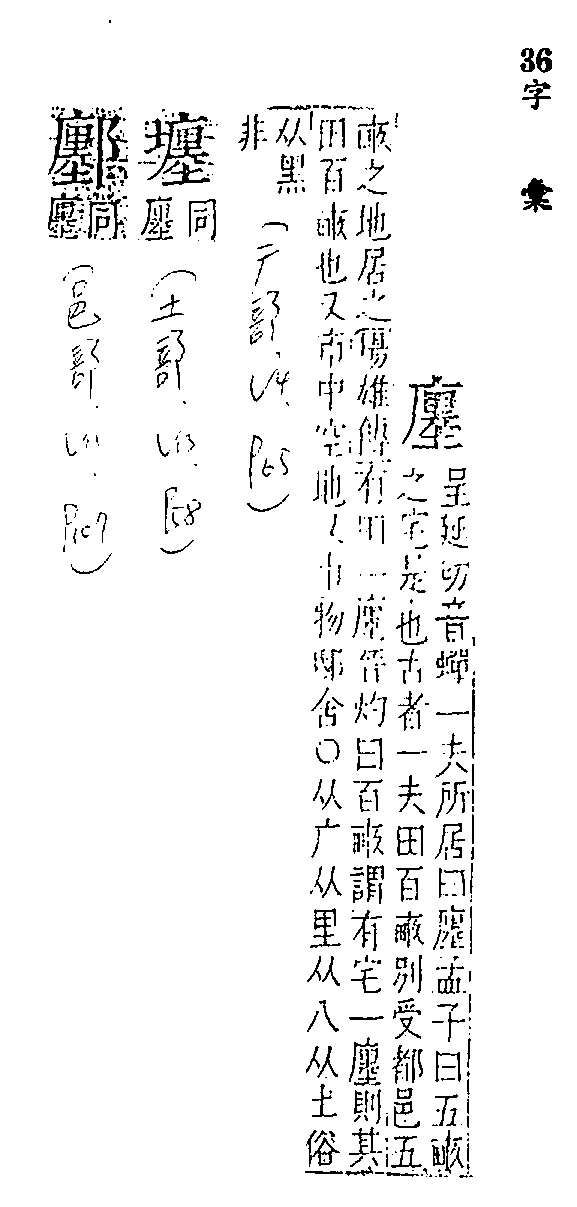 36字彙
廛
呈延切音蟬一夫所居曰廛孟子曰五畝
之宅是也古者一夫田百畝別受都邑五
畝之地居之揚雄傳有田一廛晉灼曰百畝謂有宅一廛則其
田百畝也又市中空地又市物邸舍○从广从里从八从土俗
从黑
非
(广部、V4、P65)
壥
同廛
(土部、V3、P58)
鄽
同廛
(邑部、V11、P107)